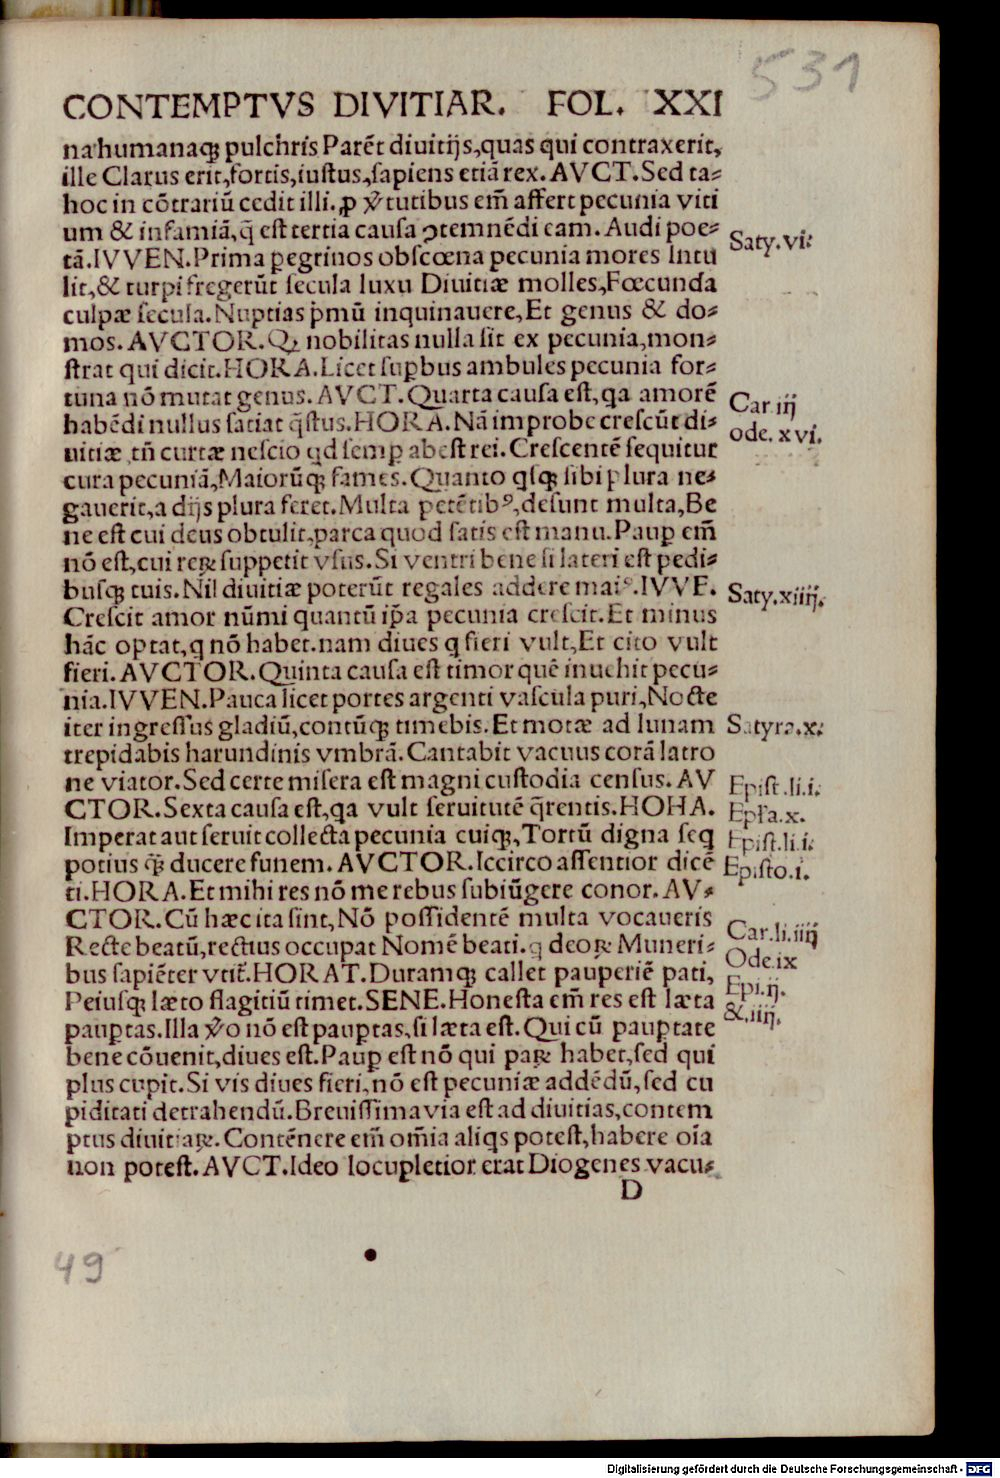 531
CONTEMPTVS DIVITIAR. FOL. XXI
na humanaqꝫ pulchris Parēt diuitijs, quas qui contraxerit,
ille Clarus erit, fortis, iustus, sapiens etiā rex. AVCT. Sed ta-
hoc in cōtrariū cedit illi. ꝓ v̓tutibus em̄ affert pecunia viti
um & infamiā, q̄ est tertia causa ꝯtemnēdi eam. Audi poe-
tā. IVVEN. Prima ꝑegrinos obscœna pecunia mores Intu
lit, & turpi fregerūt secula luxu Diuitiæ molles, Fœcunda
culpæ secula. Nuptias p̄mū inquinauere, Et genus & do-
mos. AVCTOR. Qꝫ nobilitas nulla sit ex pecunia, mon-
strat qui dicit. HORA. Licet suꝑbus ambules pecunia for-
tuna nō mutat genus. AVCT. Quarta causa est, qa amorē
habēdi nullus satiat q̄stus. HORA. Nā improbe crescūt di-
uitiæ, tn̄ curtæ nescio qd semꝑ abest rei. Crescentē sequitur
cura pecuniā, Maiorūqꝫ fames. Quanto qsqꝫ sibi plura ne-
gauerit, a dijs plura feret. Multa petētibꝰ, desunt multa, Be
ne est cui deus obtulit, parca quod satis est manu. Pauꝑ em̄
nō est, cui reꝝ suppetit vsus. Si ventri bene si lateri est pedi-
busqꝫ tuis. Nil diuitiæ poterūt regales addere maiꝰ. IVVE.
Crescit amor nūmi quantū ip̄a pecunia crescit. Et minus
hāc optat, q nō habet. nam diues q fieri vult, Et cito vult
fieri. AVCTOR. Quinta causa est timor quē inuehit pecu-
nia. IVVEN. Pauca licet portes argenti vascula puri, Nocte
iter ingressus gladiū, contūqꝫ timebis. Et motæ ad lunam
trepidabis harundinis vmbrā. Cantabit vacuus corā latro
ne viator. Sed certe misera est magni custodia census. AV
CTOR. Sexta causa est, qa vult seruitutē q̄rentis. HOHA.
Imperat aut seruit collecta pecunia cuiqꝫ, Tortū digna seq
potius qꝫ̄ ducere funem. AVCTOR. Iccirco assentior dicē
ti. HORA. Et mihi res nō me rebus subiūgere conor. AV-
CTOR. Cū hæc ita sint, Nō possidentē multa vocaueris
Recte beatū, rectius occupat Nomē beati. q deoꝝ Muneri-
bus sapiēter vtit̄. HORAT. Duramqꝫ callet pauperiē pati,
Peiusqꝫ læto flagitiū timet. SENE. Honesta em̄ res est læta
pauꝑtas. Illa v̓o nō est pauꝑtas, si læta est. Qui cū pauꝑtate
bene cōuenit, diues est. Pauꝑ est nō qui paꝝ habet, sed qui
plus cupit. Si vis diues fieri, nō est pecuniæ addēdū, sed cu
piditati detrahendū. Breuissima via est ad diuitias, contem
ptus diuitiaꝝ. Contēnere em̄ om̄ia aliqs potest, habere oīa
non potest. AVCT. Ideo locupletior erat Diogenes vacu-
D
Saty. vi:
Car. iij
ode. xvi.
Saty. xiiij.
Satyra. x.
Epist. li. i.
Epł'a. x.
Epist. li. i.
Episto. i.
Car. li. iiij
Ode. ix
Epi. ij.
&. iiij.
49
Digitalisierung gefördert durch die Deutsche Forschungsgemeinschaft - DFG